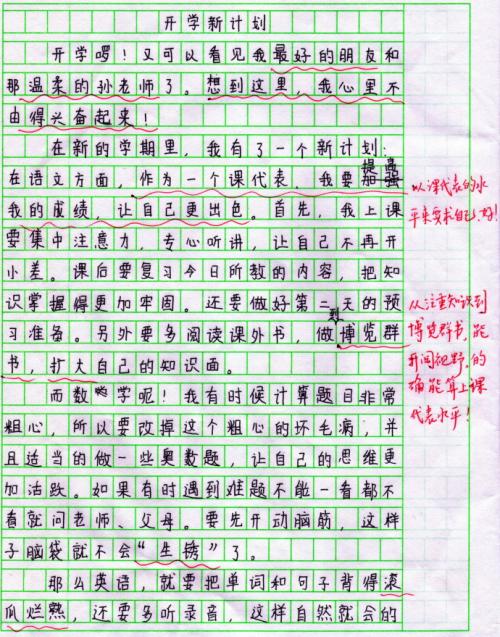 开学新计划
开学啰！又可以看见我最好的朋友和
那温柔的孙老师了。想到这里，我心里不
由得兴奋起来！
在新的学期里，我有了一个新计划：
提高
在语文方面，作为一个课代表，我要加强
我的成绩，让自己更出色。首先，我上课
要集中注意力，专心听讲，让自己不再开
小差。课后要复习今日所教的内容，把知
识掌握得更加牢固。还要做好第二天的预
到
习准备。另外要多阅读课外书，做博览群
书，扩大自己的知识面。
而数学呢！我有时候计算题目非常
粗心，所以要改掉这个粗心的坏毛病，并
且适当的做一些奥数题，让自己的思维更
加活跃。如果有时遇到难题不能一看都不
看就问老师、父母。要先开动脑筋，这样
子脑袋就不会“生锈”了。
那么英语，就要把单词和句子背得滚
瓜烂熟，还要多听录音，这样自然就会的
以课代表的水
平来要求自己，好！
从注重知识到
博览群书，能
开阔视野，的
确能算上课
代表水平！